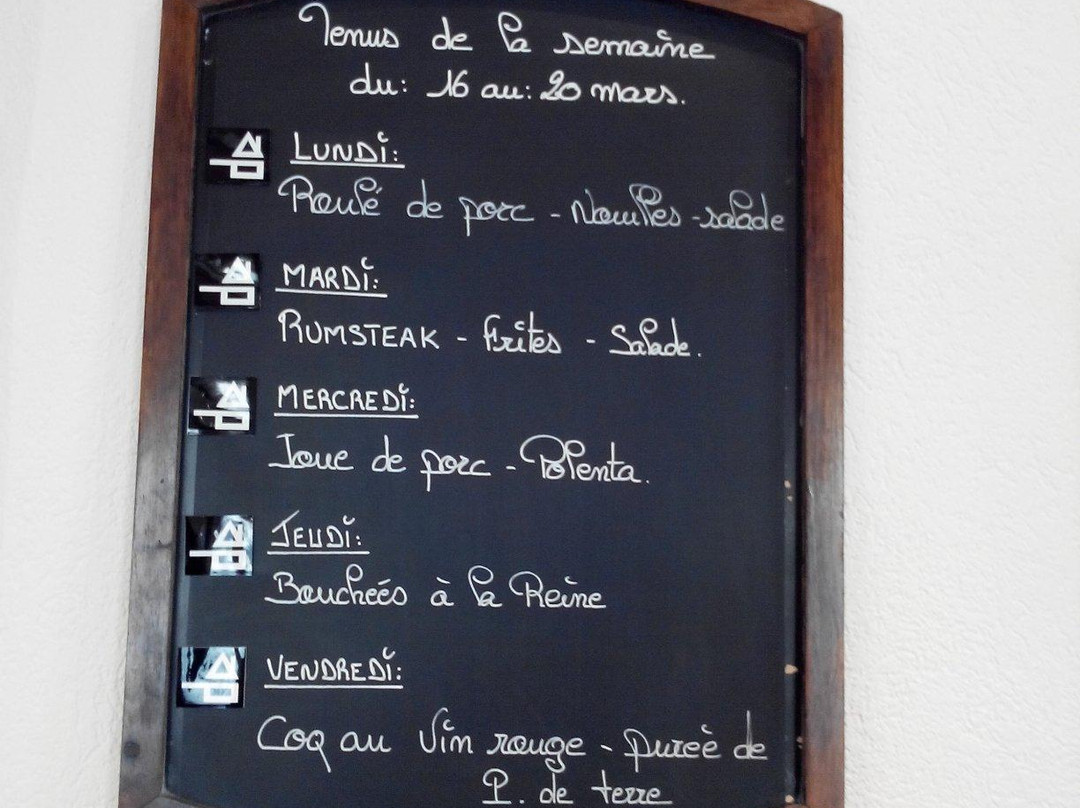 Menus de la semaine
du: 16 au: 20 mars.
LUNDI:
Roulé de porc - Nouilles - salade
MARDI:
RUMSTEAK - Frites - Salade.
MERCREDI:
Joue de porc - Polenta.
JEUDI:
Bouchées à la Reine
VENDREDI:
Coq au Vin rouge - purée de
P. de terre